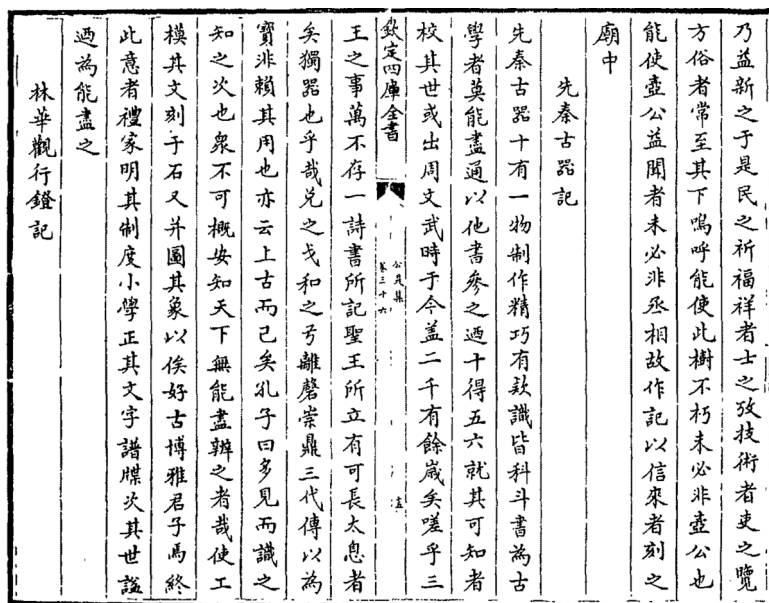 乃益新之于是民之祈福祥者士之攷技術者吏之覽
方俗者常至其下嗚呼能使此樹不朽未必非壺公也
能使壺公益聞者未必非丞相故作記以信來者刻之
廟中
先秦古器記
先秦古器十有一物制作精巧有款識皆科斗書為古
學者莫能盡通以他書參之迺十得五六就其可知者
校其世或出周文武時于今蓋二千有餘嵗矣嗟乎三
欽定四庫全書
公是集
卷三十六
王之事萬不存一詩書所記聖王所立有可長太息者
矣獨器也乎哉兌之戈和之弓離磬崇鼎三代傳以為
寶非賴其用也亦云上古而已矣孔子曰多見而識之
知之次也衆不可概安知天下無能盡辨之者哉使工
模其文刻于石又并圖其象以俟好古博雅君子焉終
此意者禮家明其制度小學正其文字譜牒次其世諡
迺為能盡之
林華觀行鐙記